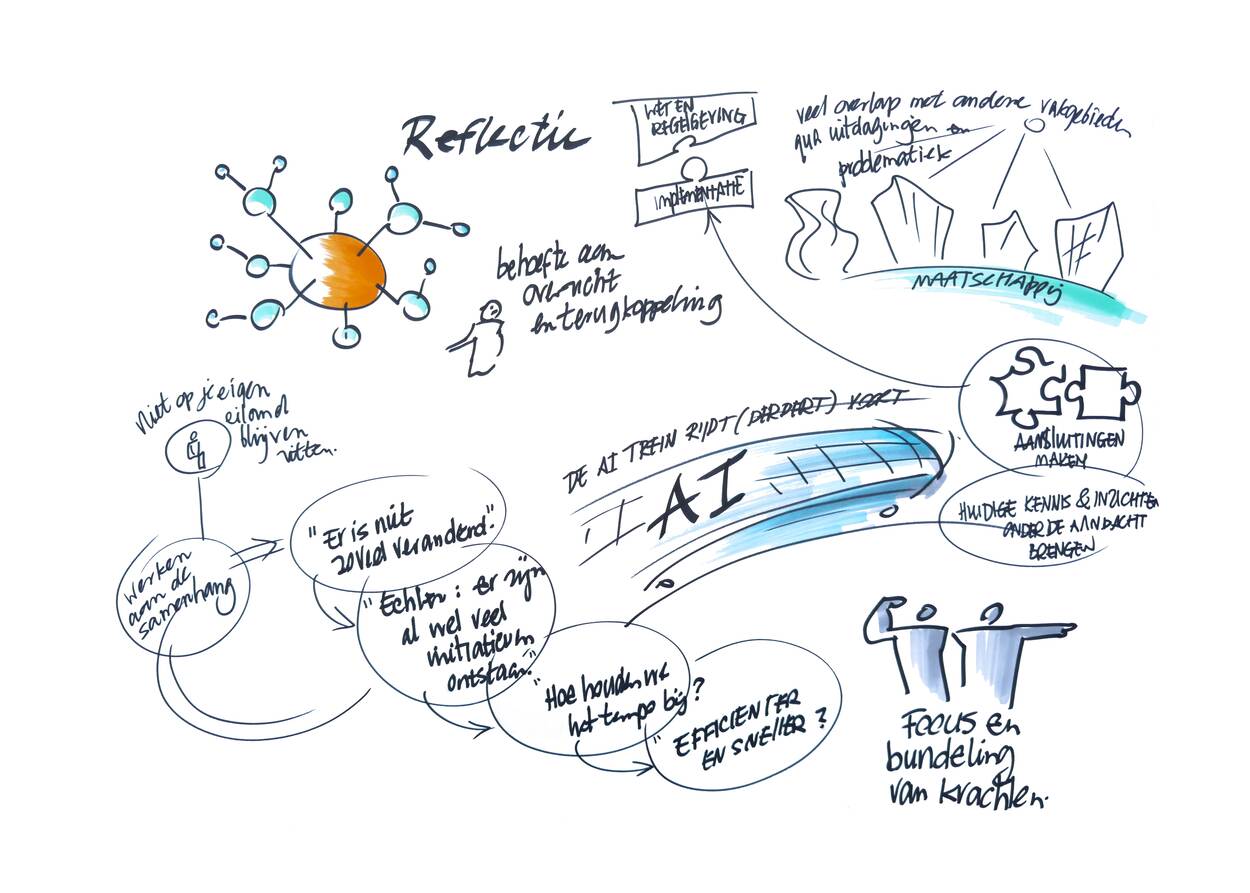 Reflectie
WET EN
REGELGEVING
IMPLEMENTATIE
veel overlap met andere vakgebieden
qua uitdagingen en
problematiek
MAATSCHAPPIJ
behoefte aan
overzicht
en terugkoppeling
niet op je eigen
eiland
blijven
zitten.
DE AI TREIN RIJDT (DENDERT) VOORT
AI
AANSLUITINGEN
MAKEN
HUIDIGE KENNIS & INZICHTEN
ONDER DE AANDACHT
BRENGEN
werken
aan de
samenhang
"Er is niet
zoveel veranderd."
"Echter: er zijn
al wel veel
initiatieven
ontstaan."
"Hoe houden we
het tempo bij?
"EFFICIENTER
EN SNELLER?
Focus en
bundeling
van krachten.